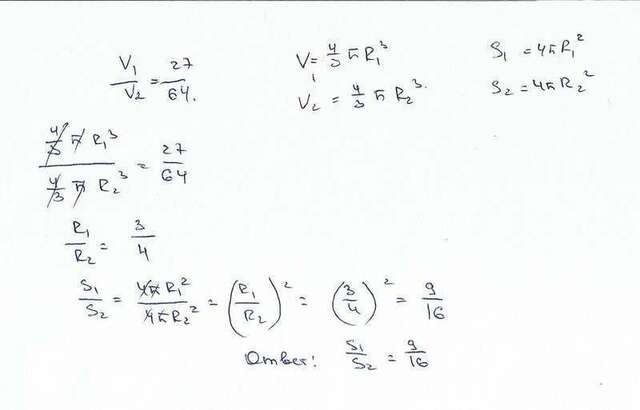 V₁/V₂ = 27/64. V₁ = 4/3 π R₁³ S₁ = 4πR₁²
V₂ = 4/3 π R₂³. S₂ = 4πR₂²
(4/3 π R₁³)/(4/3 π R₂³) = 27/64
R₁/R₂ = 3/4
S₁/S₂ = (4πR₁²)/(4πR₂²) = (R₁/R₂)² = (3/4)² = 9/16
Ответ: S₁/S₂ = 9/16